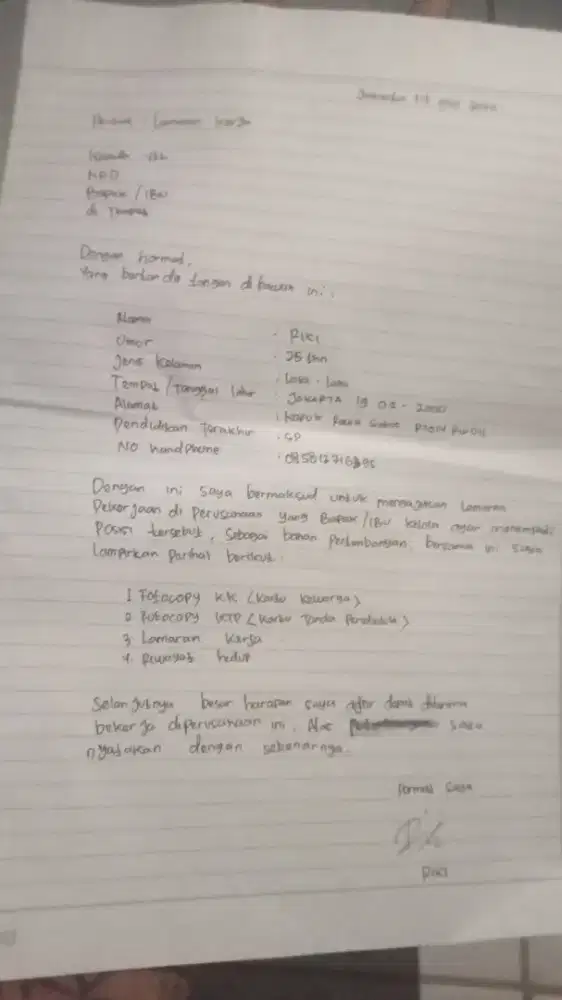 Lamaran kerja
HRD
Bapak / IBU
di Tempat
Dengan hormat,
Yang bertanda tangan di bawah ini :
Nama : RIKI
Umor : 25 thn
Jenis Kelamin : Laki - Laki
Tempat / Tanggal lahir : JAKARTA 19 02 - 2000
Alamat : kapuk Raya
Pendidikan Terakhir : SD
NO handphone
Dengan ini saya bermaksud untuk mengajukan Lamaran
Pekerjaan di perusahaan yang Bapak / IBU kelola agar menempati
Posisi tersebut, Sebagai bahan Pertimbangan, bersama ini saya
Lampirkan Perihal berikut :
1 Fotocopy KK (Kartu Keluarga)
2 Fotocopy KTP (Kartu Tanda Penduduk)
3 Lamaran Kerja
4. Riwayat hidup
Selanjutnya besar harapan saya agar dapat diterima
bekerja diperusahaan ini. saya
nyatakan dengan sebenarnya.
Hormat saya
RIKI